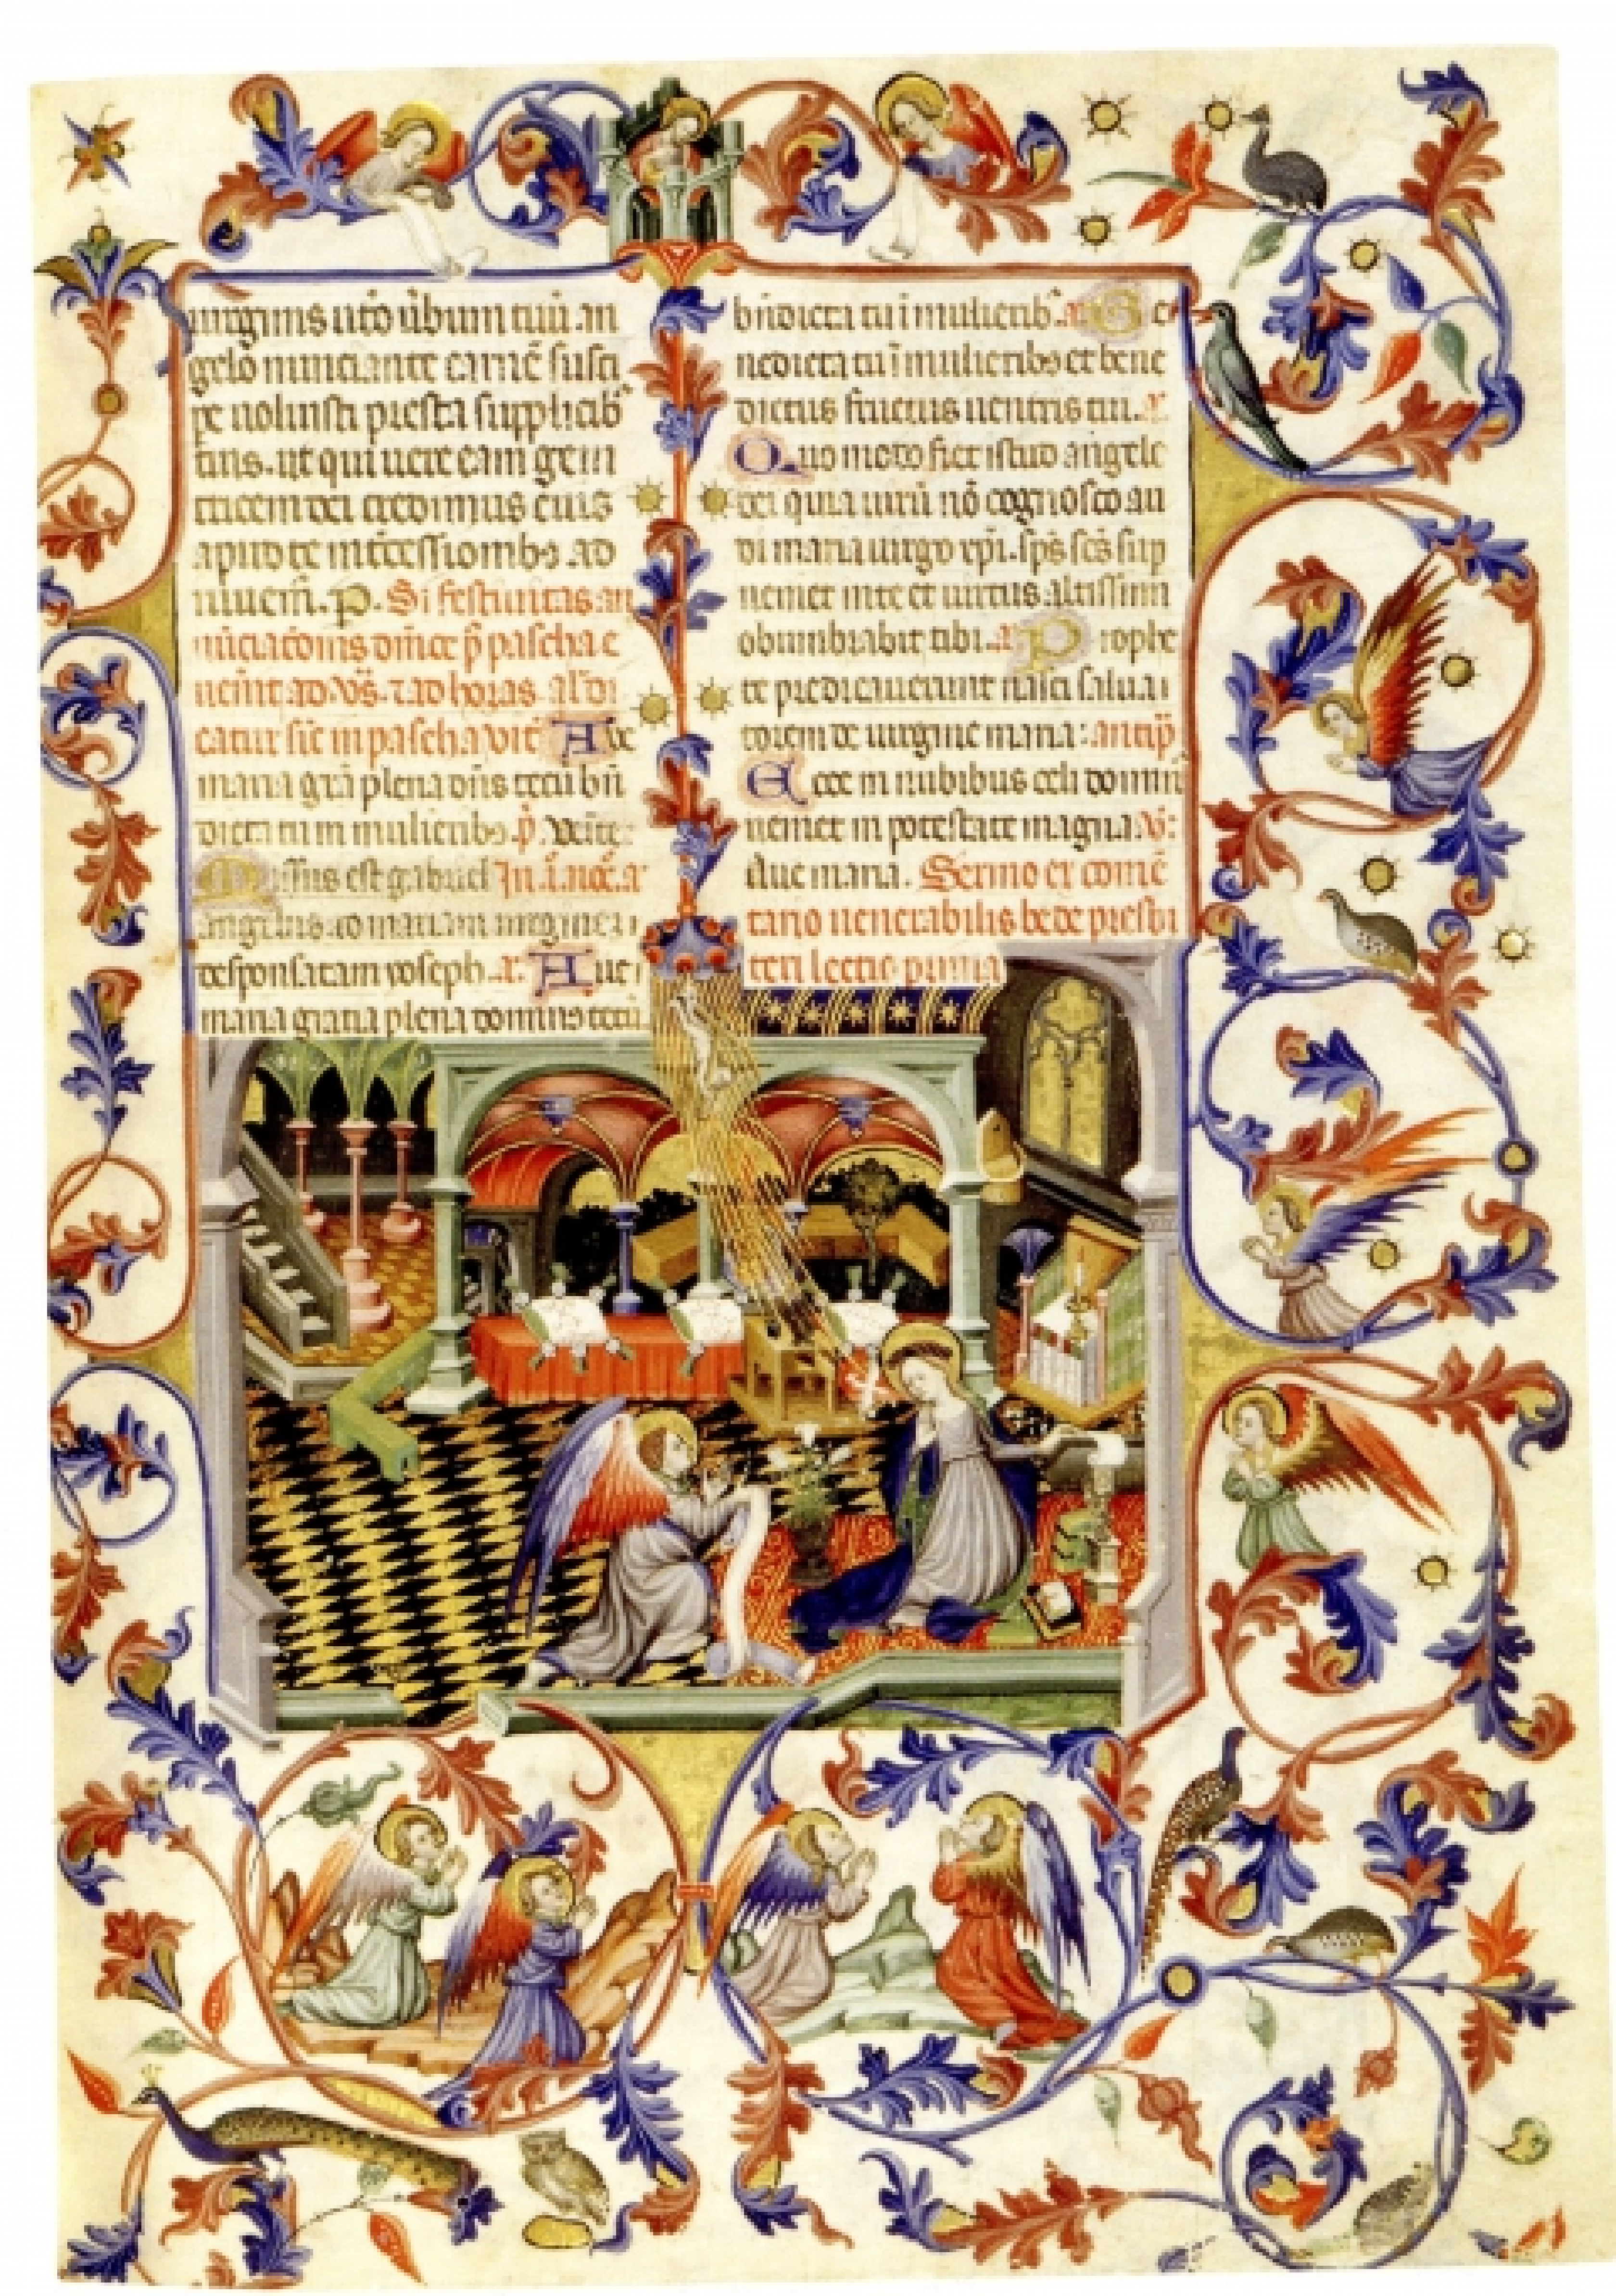 uirginis uťo ūbum tuū .an
gelo nunciante carnē susci
pe uoluisti presta supplicib
tuis. ut qui uere eam geni
tricem dei credimus eius
apud te int̄cessionibs ad
iuuem̄. P. Si festiuitas an
nūciatōnis dn̄ice p̄ pascha e
uen̄it ad v̄s. ⁊ ad horas al' di
catur sic̄ in pascha. Inuit̄ Aue
maria gr̄a plena dn̄s tecū bn̄
dicta tu in mulieribs. p̄. Venite.
Missus est gabriel In .i. noc̄. a
angelus ad mariam uirginem
desponsatam yoseph. ℣. Aue
maria gratia plena dominus tecū.
bn̄dicta tu ī mulierib. a Be
nedicta tu ī mulieribs et bene
dictus fructus uentris tui. ℣.
Quo modo fiet istud angele
dei quia uirū nō cognosco au
di maria uirgo xp̄i. sp̄s sc̄s sup
ueniet in te et uirtus altissimi
obumbrabit tibi. a Prophe
te predicauerunt nasci salua
torem de uirgine maria: antip̄
Ecce in nubibus celi domin̄
ueniet in potestate magna. v̄:
Aue maria. Sermo ex comē
tario uenerabilis bede presbi
teri lectio prima